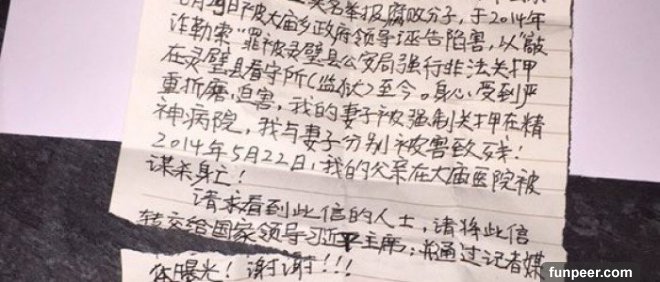 实名举报腐败分子,于2014年
6月29日被大庙乡政府领导诬告陷害,以"敲
诈勒索"罪被灵璧县公安局强行非法关押
在灵璧县看守所(监狱)至今。身心受到严
重折磨迫害,我的妻子被强制关押在精
神病院,我与妻子分别被害致残!
2014年5月22日,我的父亲在大庙医院被
谋杀身亡!
请求看到此信的人士,请将此信
转交给国家领导习近平主席;和通过记者媒
体曝光!谢谢!!!
funpeer.com